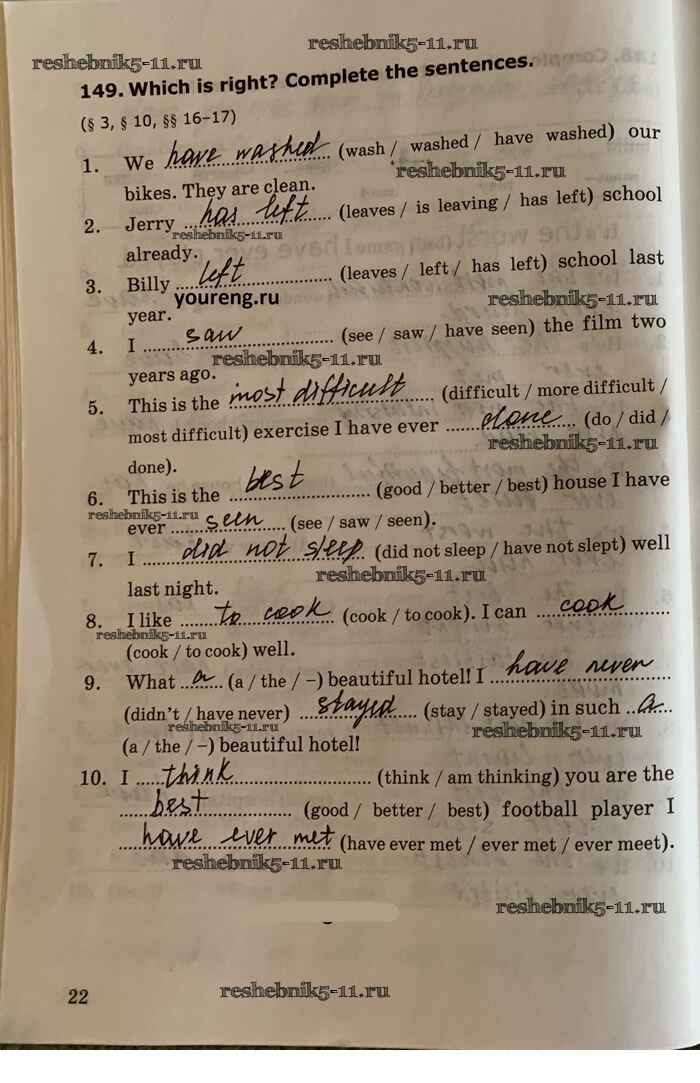 reshebnik5-11.ru
reshebnik5-11.ru
149. Which is right? Complete the sentences.
(§ 3, § 10, §§ 16–17)
1. We have washed (wash / washed / have washed) our
reshebnik5-11.ru
bikes. They are clean.
2. Jerry has left (leaves / is leaving / has left) school
reshebnik5-11.ru
already.
3. Billy left (leaves / left / has left) school last
youreng.ru
reshebnik5-11.ru
year.
4. I saw (see / saw / have seen) the film two
reshebnik5-11.ru
years ago.
5. This is the most difficult (difficult / more difficult /
most difficult) exercise I have ever done (do / did /
reshebnik5-11.ru
done).
6. This is the best (good / better / best) house I have
reshebnik5-11.ru
ever seen (see / saw / seen).
7. I did not sleep (did not sleep / have not slept) well
reshebnik5-11.ru
last night.
8. I like to cook (cook / to cook). I can cook
reshebnik5-11.ru
(cook / to cook) well.
9. What a (a / the / –) beautiful hotel! I have never
(didn't / have never) stayed (stay / stayed) in such a
reshebnik5-11.ru
reshebnik5-11.ru
(a / the / –) beautiful hotel!
10. I think (think / am thinking) you are the
best (good / better / best) football player I
have ever met (have ever met / ever met / ever meet).
reshebnik5-11.ru
reshebnik5-11.ru
22
reshebnik5-11.ru